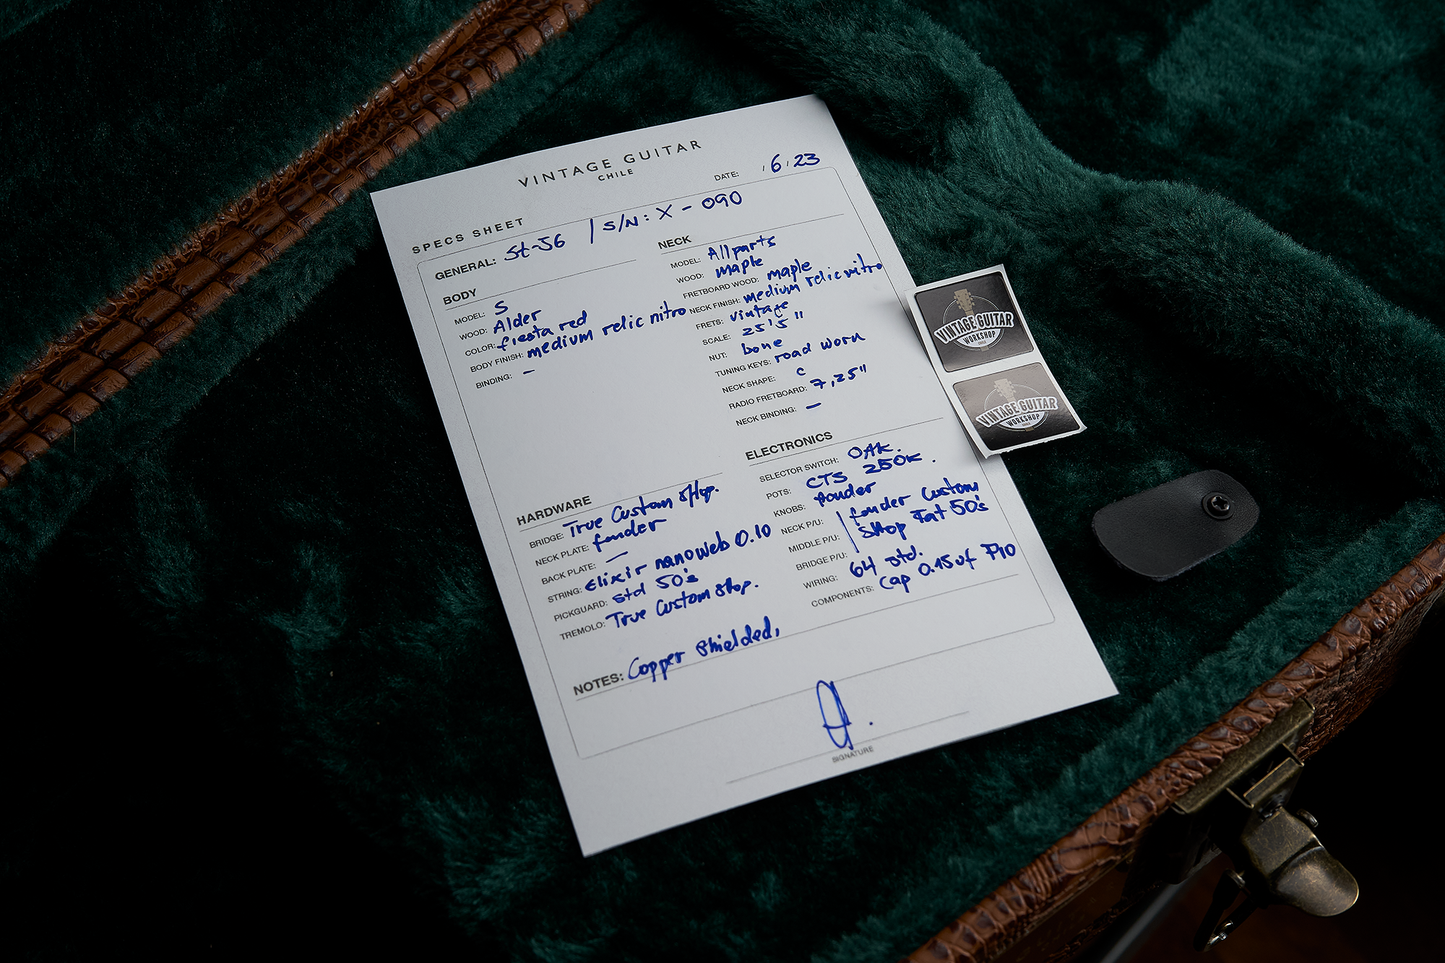 VINTAGE GUITAR
CHILE
SPECS SHEET
DATE: 6.23
GENERAL: St-56 / S/N: X - 090
BODY
MODEL: S
WOOD: Alder
COLOR: fiesta red
BODY FINISH: medium relic nitro
BINDING: –
NECK
MODEL: Allparts
WOOD: maple
FRETBOARD WOOD: maple
NECK FINISH: medium relic nitro
FRETS: vintage
SCALE: 25'5"
NUT: bone
TUNING KEYS: road worn
NECK SHAPE: C
RADIO FRETBOARD: 7,25"
NECK BINDING: –
HARDWARE
BRIDGE: True Custom Shop.
NECK PLATE: fender
BACK PLATE: –
STRING: Elixir nanoweb 0.10
PICKGUARD: std 50's
TREMOLO: True Custom Shop.
ELECTRONICS
SELECTOR SWITCH: OAK.
POTS: CTS 250K.
KNOBS: fender
NECK P/U: fender Custom
MIDDLE P/U: Shop Fat 50's
BRIDGE P/U:
WIRING: 64 std.
COMPONENTS: Cap 0.15uf PIO
NOTES: Copper Shielded,
SIGNATURE
VINTAGE GUITAR
WORKSHOP
VINTAGE GUITAR
WORKSHOP